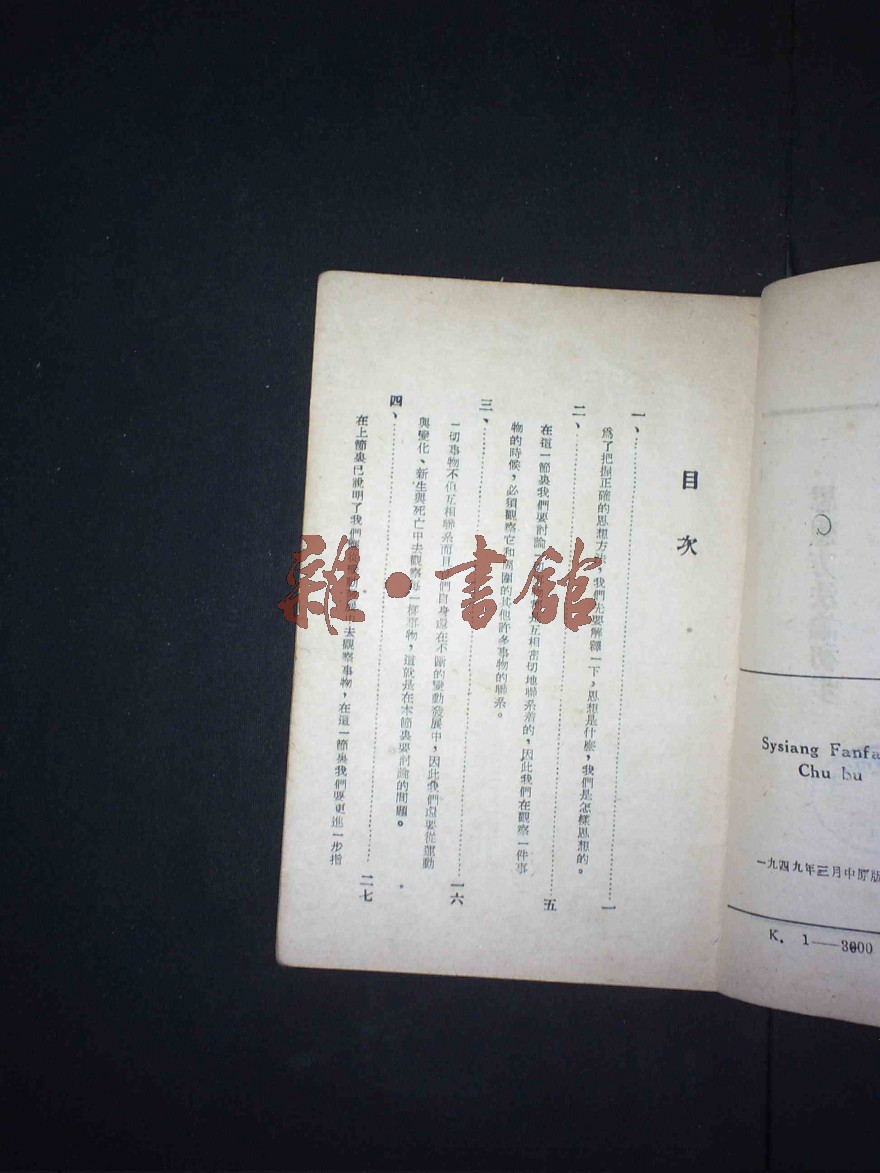 目次
一、……一
爲了把握正確的思想方法，我們先要解釋一下，思想是什麼，我們是怎樣思想的。
二、……五
在這一節裏我們要討論一切 互相密切地聯系着的，因此我們在觀察一件事
物的時候，必須觀察它和周圍的其他許多事物的聯系。
三、……一六
一切事物不但互相聯系而且 們自身還在不斷的變動發展中，因此我們還要從運動
與變化、新生與死亡中去觀察每一樣事物，這就是在本節裏要討論的問題。
四、……二七
在上節裏已說明了我們 去觀察事物，在這一節裏我們要更進一步指
雜·書館
Sysiang Fanfa
Chu bu
一九四九年三月中原版
K. 1——3000